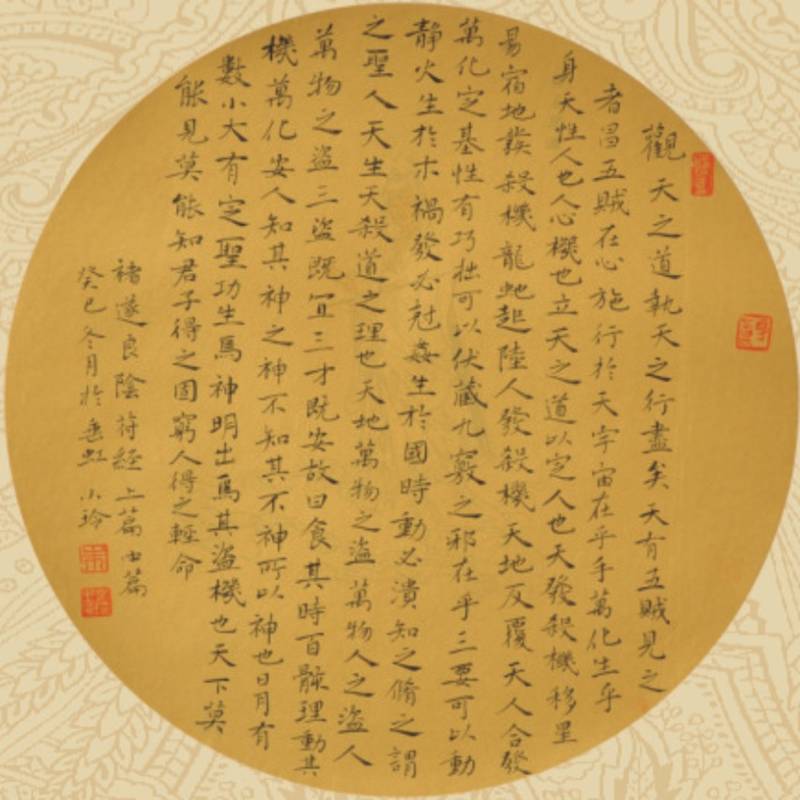 觀天之道執天之行盡矣天有五賊見之
者昌五賊在心施行於天宇宙在乎手萬化生乎
身天性人也人心機也立天之道以定人也天發殺機移星
易宿地發殺機龍虵起陸人發殺機天地反覆天人合發
萬化定基性有巧拙可以伏藏九竅之邪在乎三要可以動
靜火生於木禍發必尅姦生於國時動必潰知之脩之謂
之聖人天生天殺道之理也天地萬物之盜萬物人之盜人
萬物之盜三盜既宜三才既安故曰食其時百骸理動其
機萬化安人知其神之神不知其不神所以神也日月有
數小大有定聖功生焉神明出焉其盜機也天下莫
能見莫能知君子得之固窮人得之輕命
褚遂良陰符經上篇中篇
癸巳冬月於垂虹小玲